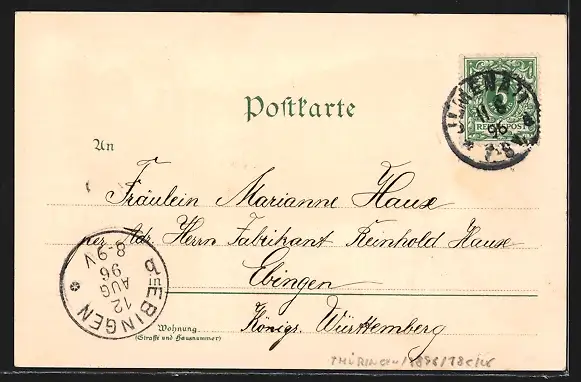 Postkarte
ILMENAU
11 8
96
REICHSPOST
An
Fräulein Marianne Haux
per Adr. Herrn Fabrikant Reinhold Hauxe
Ebingen
Königr. Württemberg
EBINGEN
12
AUG
96
8-9V
Wohnung
(Straße und Hausnummer)
THÜRINGEN/1896/